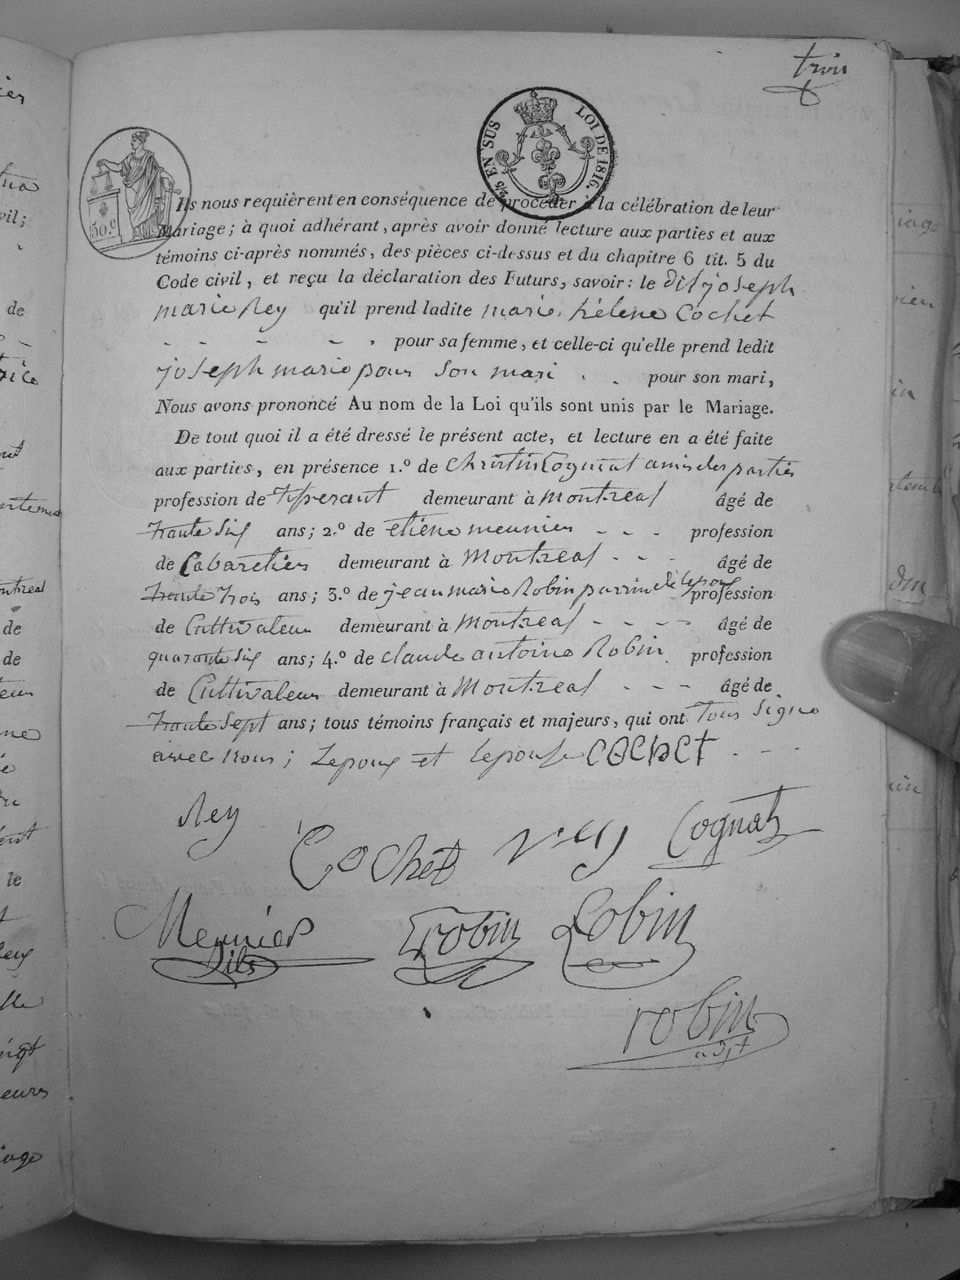 trois
2/5 EN SUS LOI DE 1816.
50 c
Ils nous requièrent en conséquence de procéder à la célébration de leur
Mariage; à quoi adhérant, après avoir donné lecture aux parties et aux
témoins ci-après nommés, des pièces ci-dessus et du chapitre 6 tit. 5 du
Code civil, et reçu la déclaration des Futurs, savoir: le dit joseph
marie Rey qu'il prend ladite marie hélène Cochet
- - - - . pour sa femme, et celle-ci qu'elle prend ledit
joseph marie pour son mari . . pour son mari,
Nous avons prononcé Au nom de la Loi qu'ils sont unis par le Mariage.
De tout quoi il a été dressé le présent acte, et lecture en a été faite
aux parties, en présence 1.º de Cognat amis des parties
profession de tisserant demeurant à Montreal âgé de
trante six ans; 2.º de etiene meunier - - - profession
de Cabaretier demeurant à Montreal - - - âgé de
trante trois ans; 3.º de jean marie Robin parrin de lepoux profession
de Cultivateur demeurant à Montreal - - - - âgé de
quarante six ans; 4.º de claude antoine Robin profession
de Cultivateur demeurant à Montreal - - - âgé de
trante sept ans; tous témoins français et majeurs, qui ont tous signé
avec nous; Lepoux et lepouse COCHET - - -
Rey
Cochet Rey Cognat
Meunier fils Robin Robin
robin
adjt